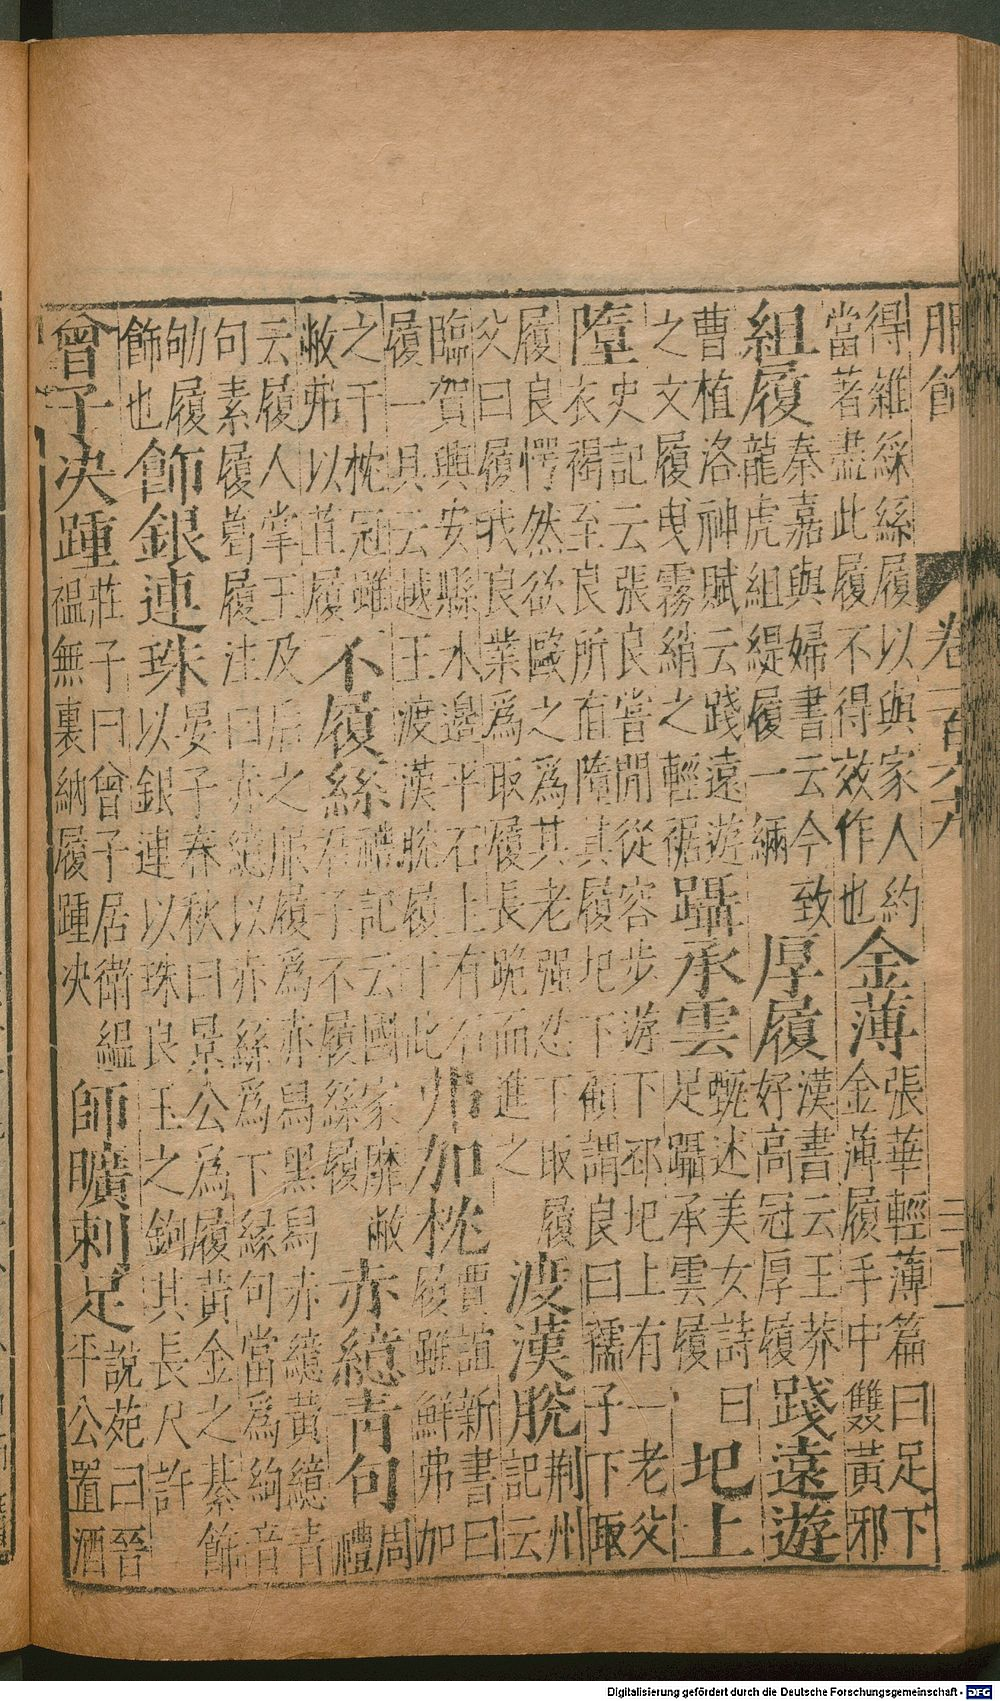 服飾
卷一百六
得雜綵絲履以與家人約
當著盡此履不得效作也
金薄
張華輕薄篇曰足下
金薄履手中雙黃邪
組履
秦嘉與婦書云今致
龍虎組緹履一緉
厚履
漢書云王莽
好高冠厚履
踐遠遊
曹植洛神賦云踐遠遊
之文履曳霧綃之輕裾
躡承雲
甄述美女詩曰
足躡承雲履
圯上
墮
史記云張良嘗閒從容步游下邳圯上有一老父
衣褐至良所直墮其履圯下顧謂良曰孺子下取
履良愕然欲歐之為其老彊忍下取履
父曰履我良業為取履長跪而進之
渡漢脫
荊州
記云
臨賀興安縣水邊平石上有石
履一具云越王渡漢脫履于此
弗加枕
賈誼新書曰
履雖鮮弗加
之于枕冠雖
敝弗以苴履
不履絲
禮記云國家靡敝
君子不履絲履
赤繶青句
周
禮
云履人掌王及后之服履為赤舄黑舄赤繶黃繶青
句素履葛履注曰赤繶以赤絲為下緣句當為絇音
劬履
飾也
飾銀連珠
晏子春秋曰景公為履黃金之綦飾
以銀連以珠良玉之鉤其長尺許
曾子决踵
莊子曰曾子居衛縕
褞無裏納履踵决
師曠刺足
說苑曰晉
平公置酒
Digitalisierung gefördert durch die Deutsche Forschungsgemeinschaft - DFG